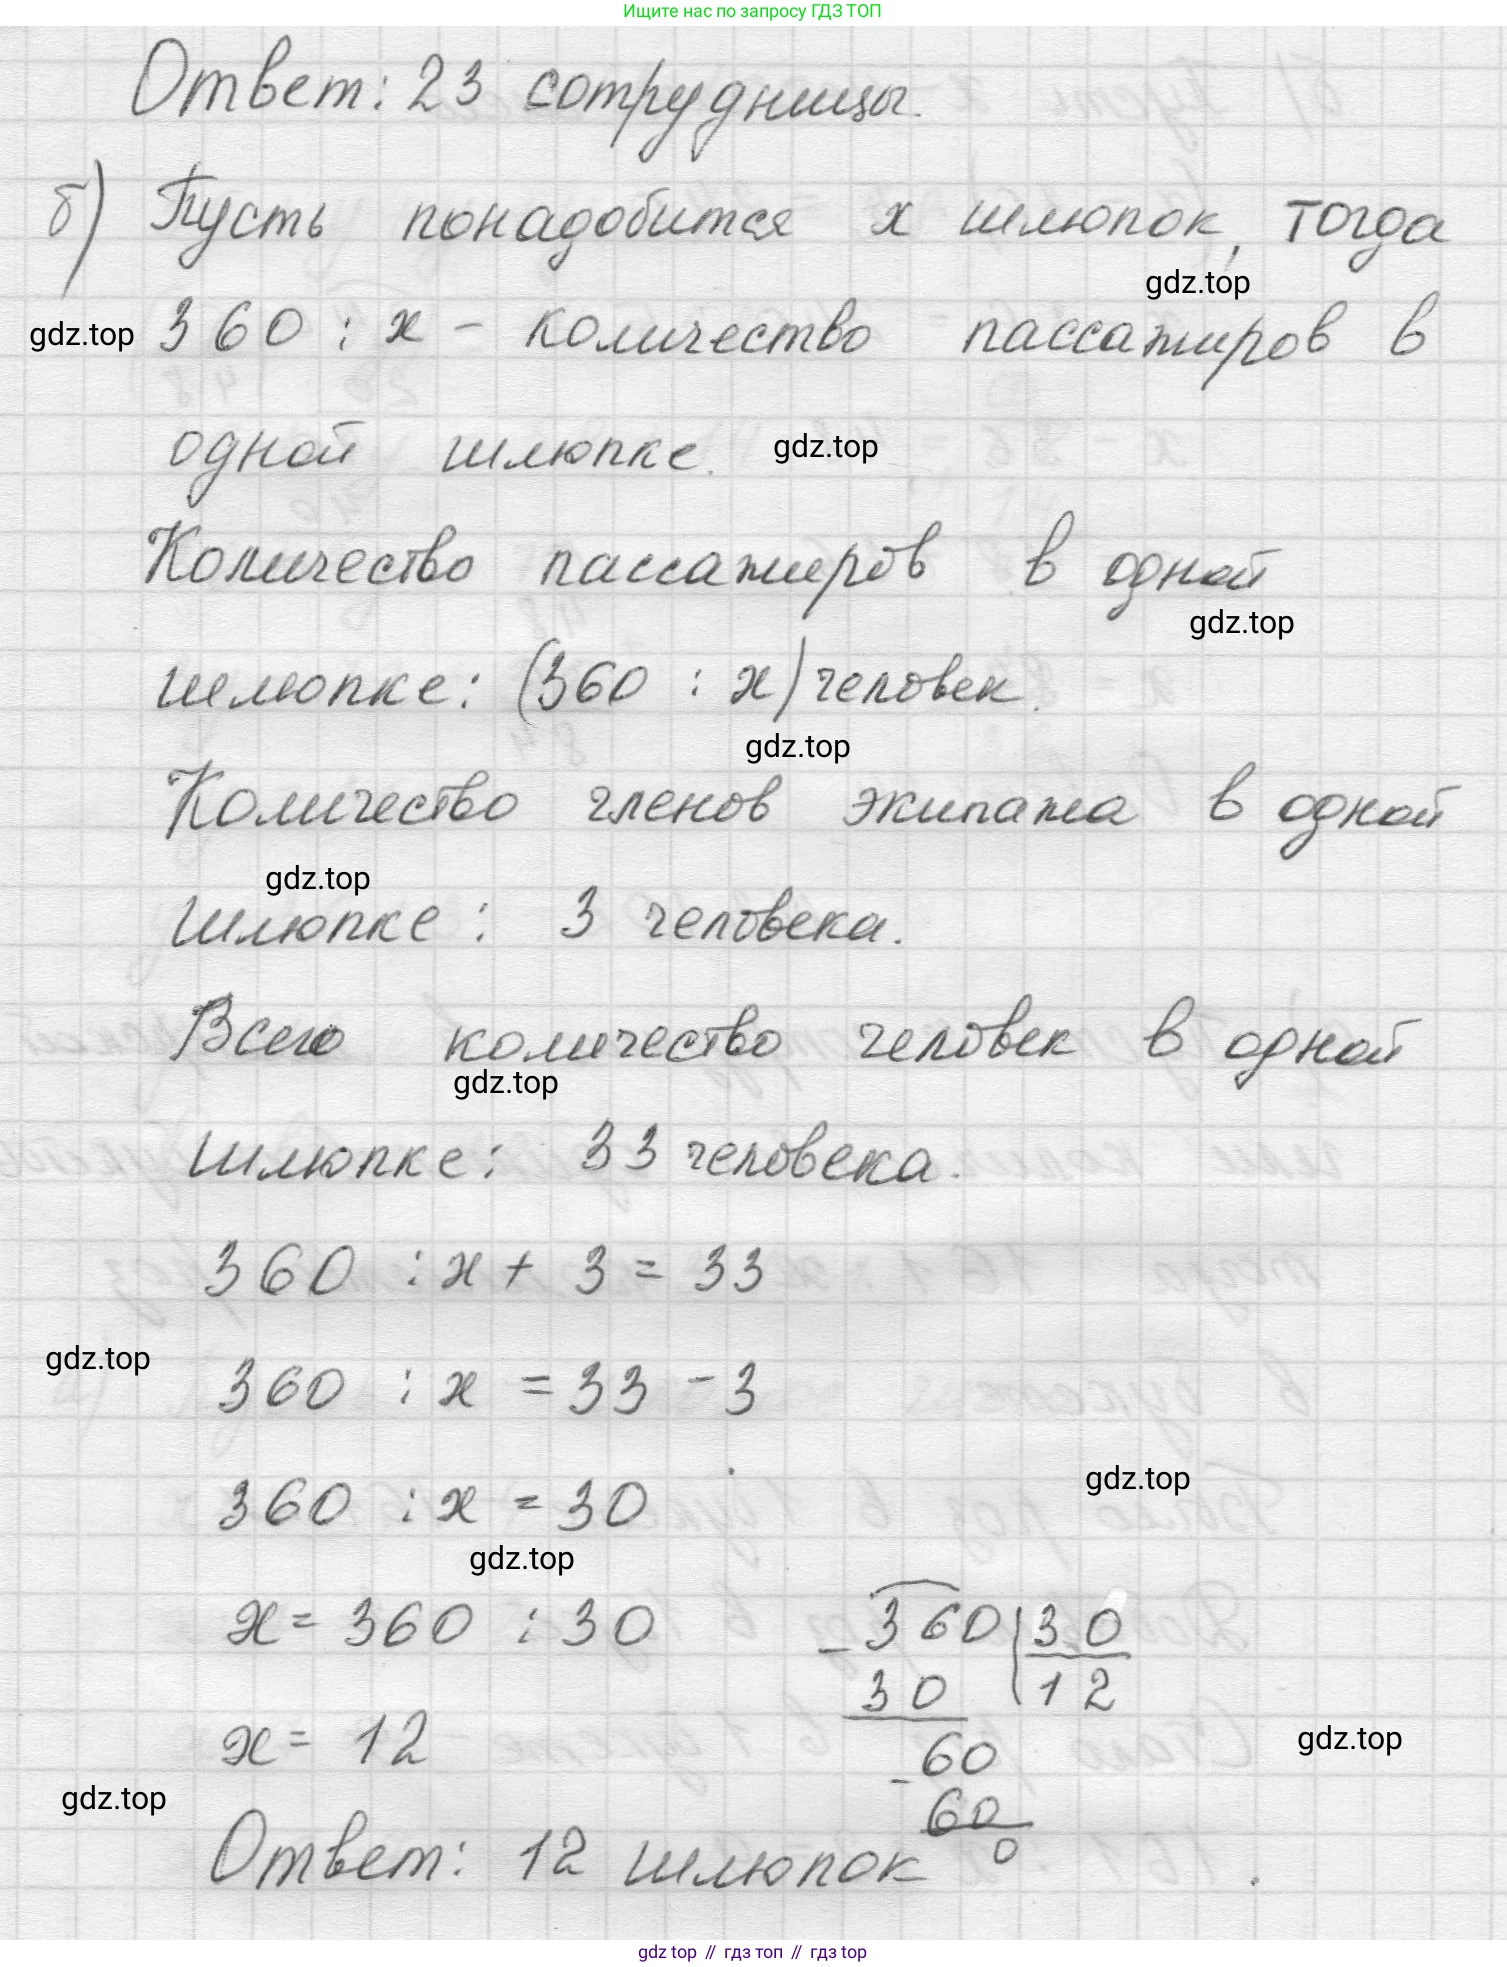 Ищите нас по запросу ГДЗ ТОП
Ответ: 23 сотрудницы.
б) Пусть понадобится х шлюпок, тогда
gdz.top
gdz.top 360 : х - количество пассажиров в
одной шлюпке. gdz.top
Количество пассажиров в одной
gdz.top
шлюпке: (360 : х) человек.
gdz.top
Количество членов экипажа в одной
gdz.top
шлюпке: 3 человека.
Всего количество человек в одной
gdz.top
шлюпке: 33 человека.
360 : х + 3 = 33
gdz.top
360 : х = 33 - 3
gdz.top
360 : х = 30
gdz.top
х = 360 : 30 - 360 30
30 12
х = 12 - 60
gdz.top
gdz.top
60
Ответ: 12 шлюпок. 0
gdz top // гдз топ // гдз top